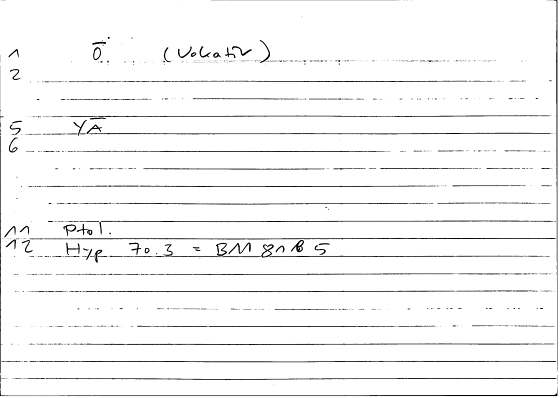 1 Ō (Vokativ)
2
5 YĀ
6
11 Ptol.
12 Hyp 70.3 = BM 81 B 5